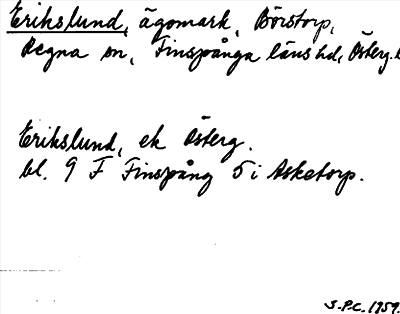 Erikslund, ägomark, Börstorp,
Regna sn, Finspånga läns hd, Österg.
Erikslund, ek Österg.
bl. 9 F Finspång 5 i Asketorp.
S.P.C. 1959.